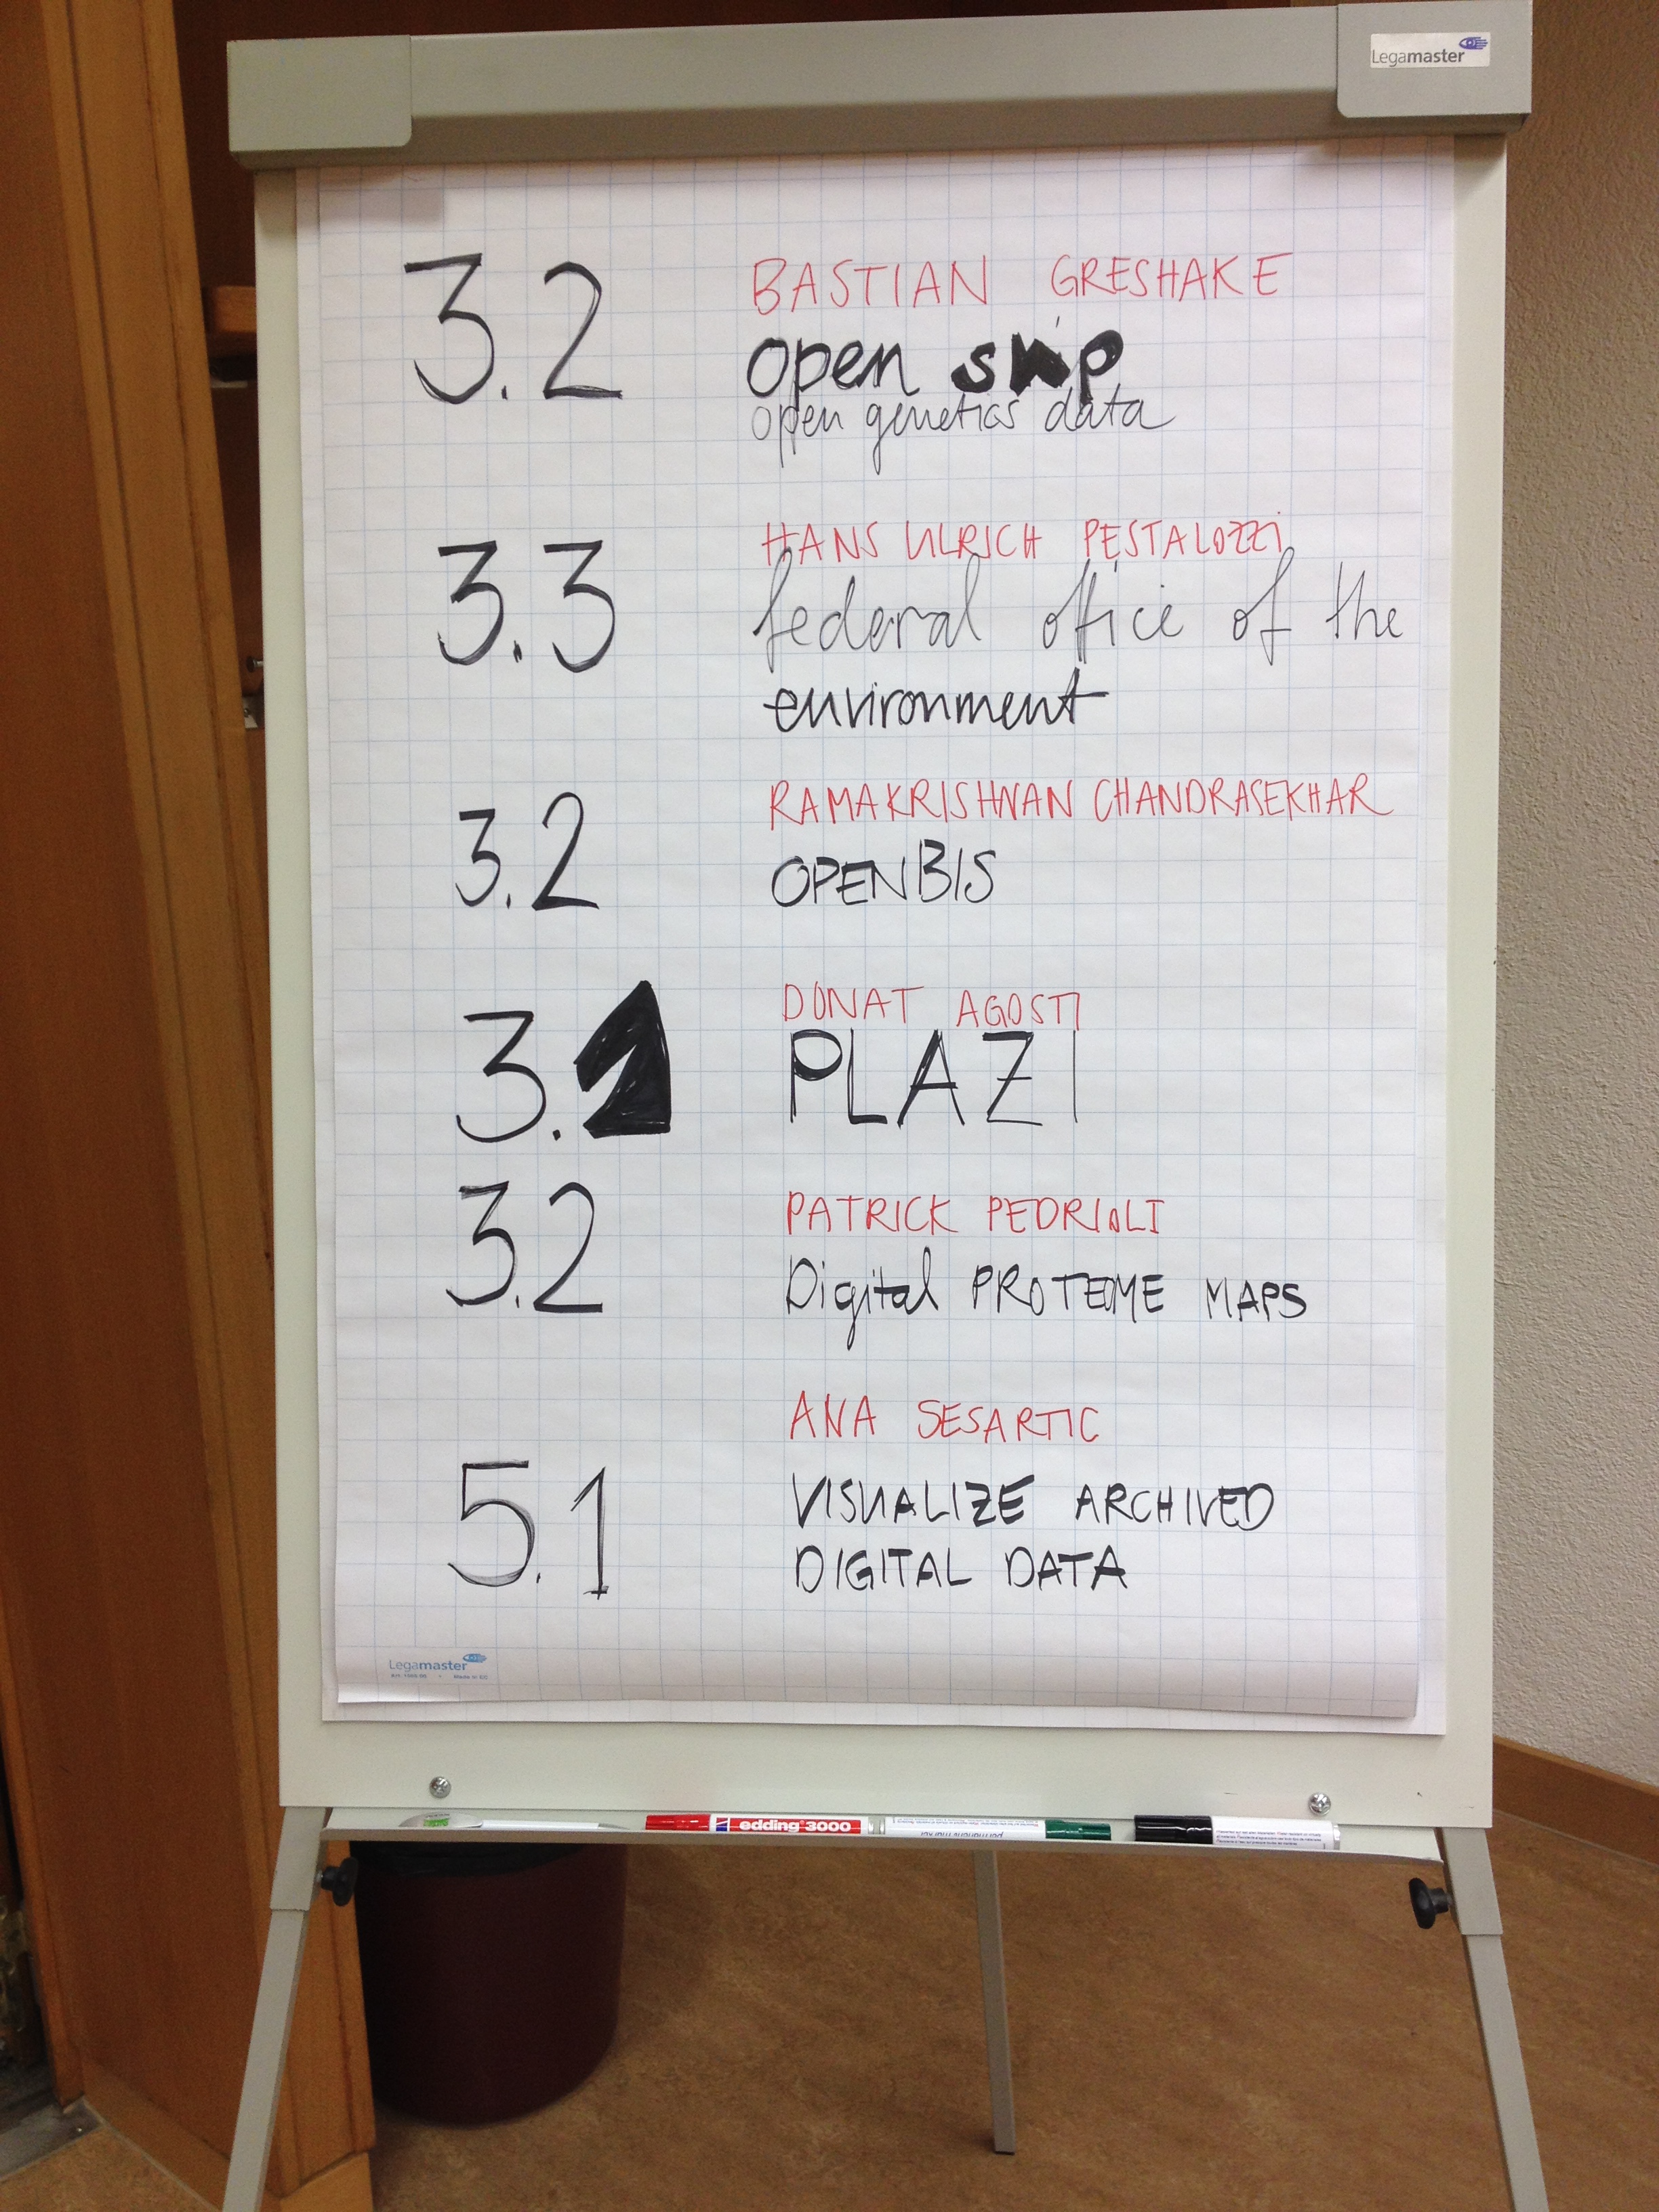 Legamaster
3.2 BASTIAN GRESHAKE
open snp
open genetics data
3.3 HANS ULRICH PESTALOZZI
federal office of the
environment
3.2 RAMAKRISHNAN CHANDRASEKHAR
OPENBIS
DONAT AGOSTI
3.1 PLAZI
3.2 PATRICK PEDRIOLI
Digital PROTEOME MAPS
ANA SESARTIC
5.1 VISUALIZE ARCHIVED
DIGITAL DATA
Legamaster
edding 3000
permanent marker